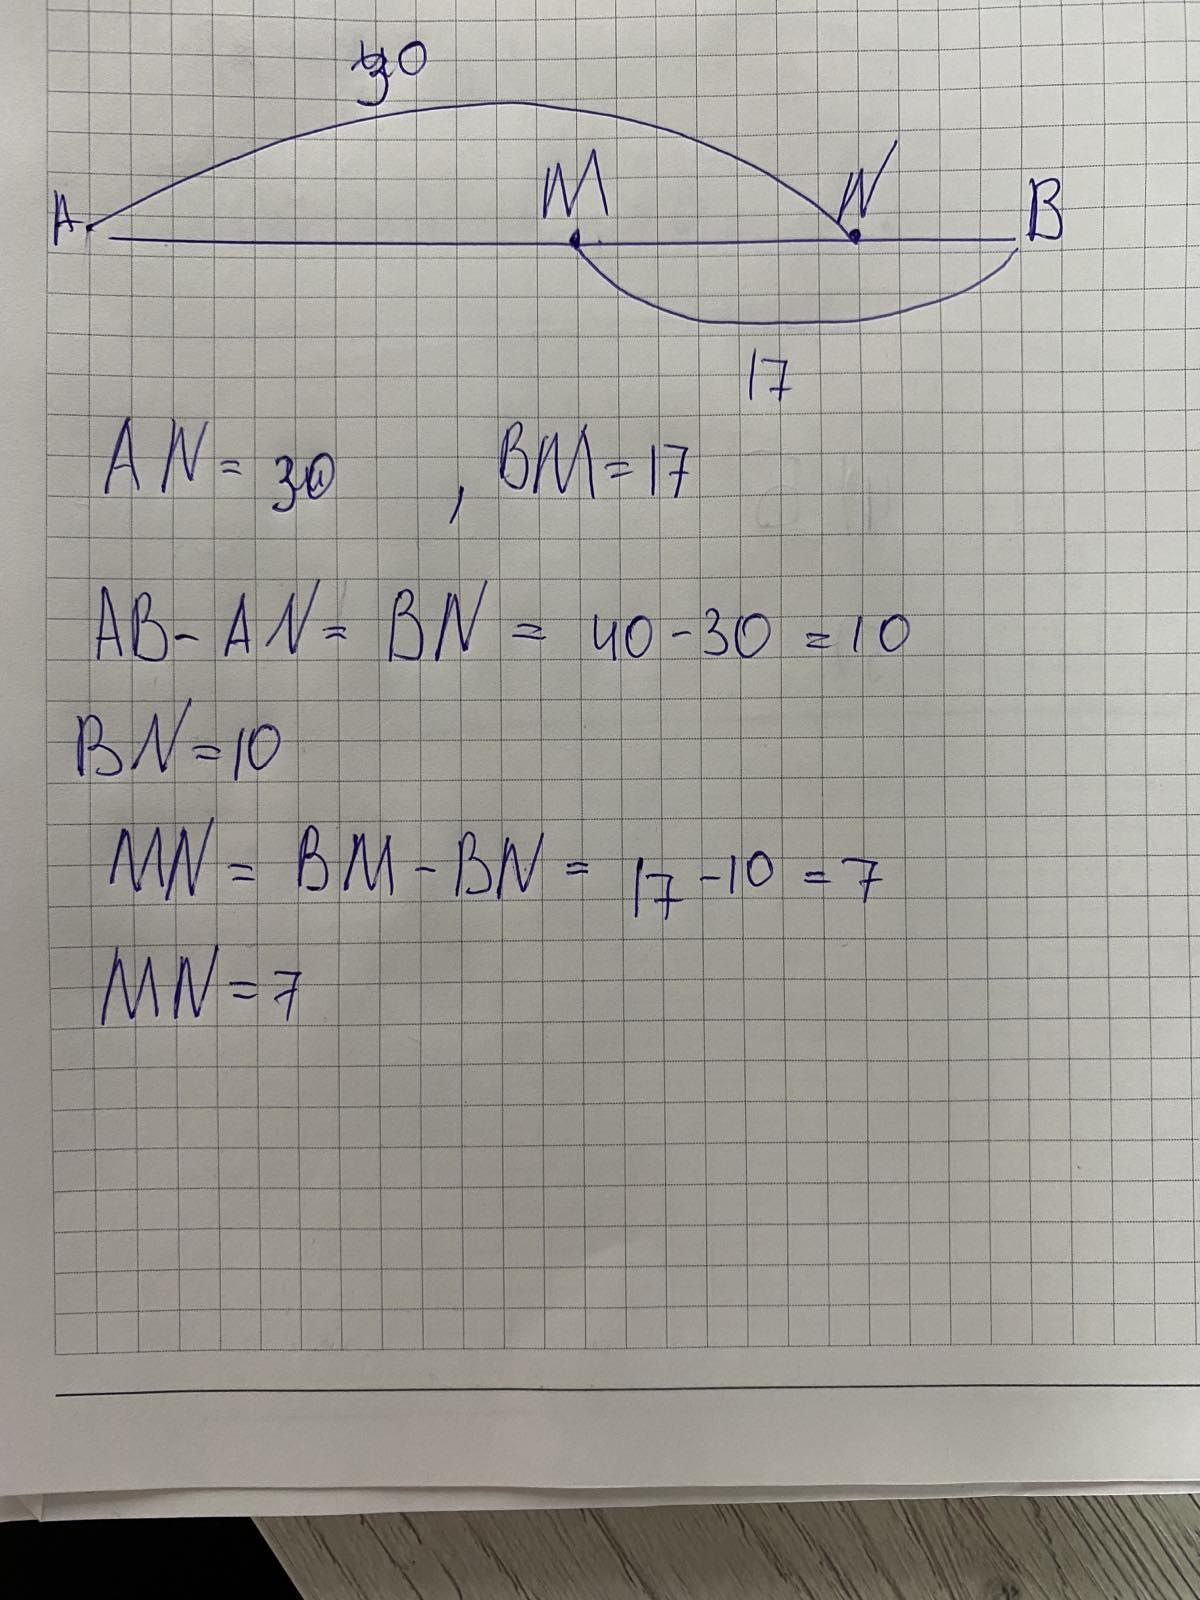 30
A M N B
17
AN = 30 , BM = 17
AB - AN = BN = 40 - 30 = 10
BN = 10
MN = BM - BN = 17 - 10 = 7
MN = 7